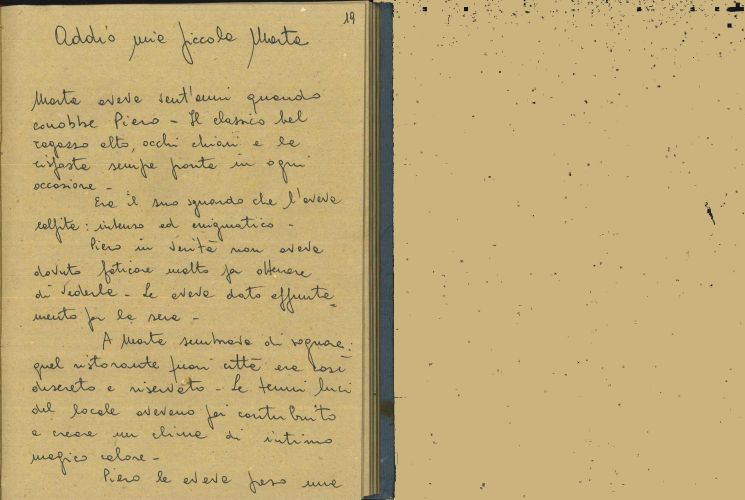 19
Addio mia piccola Marta
Marta aveva vent'anni quando
conobbe Piero - Il classico bel
ragazzo alto, occhi chiari e la
risposta sempre pronta in ogni
occasione -
Era il suo sguardo che l'aveva
colpita: intenso ed enigmatico -
Piero in verità non aveva
dovuto faticare molto per ottenere
di vederla - Le aveva dato appunta=
mento per la sera -
A Marta sembrava di sognare:
quel ristorante fuori città era così
discreto e riservato - Le tenui luci
del locale avevano poi contribuito
a creare un clima di intimo
magico calore -
Piero le aveva preso una